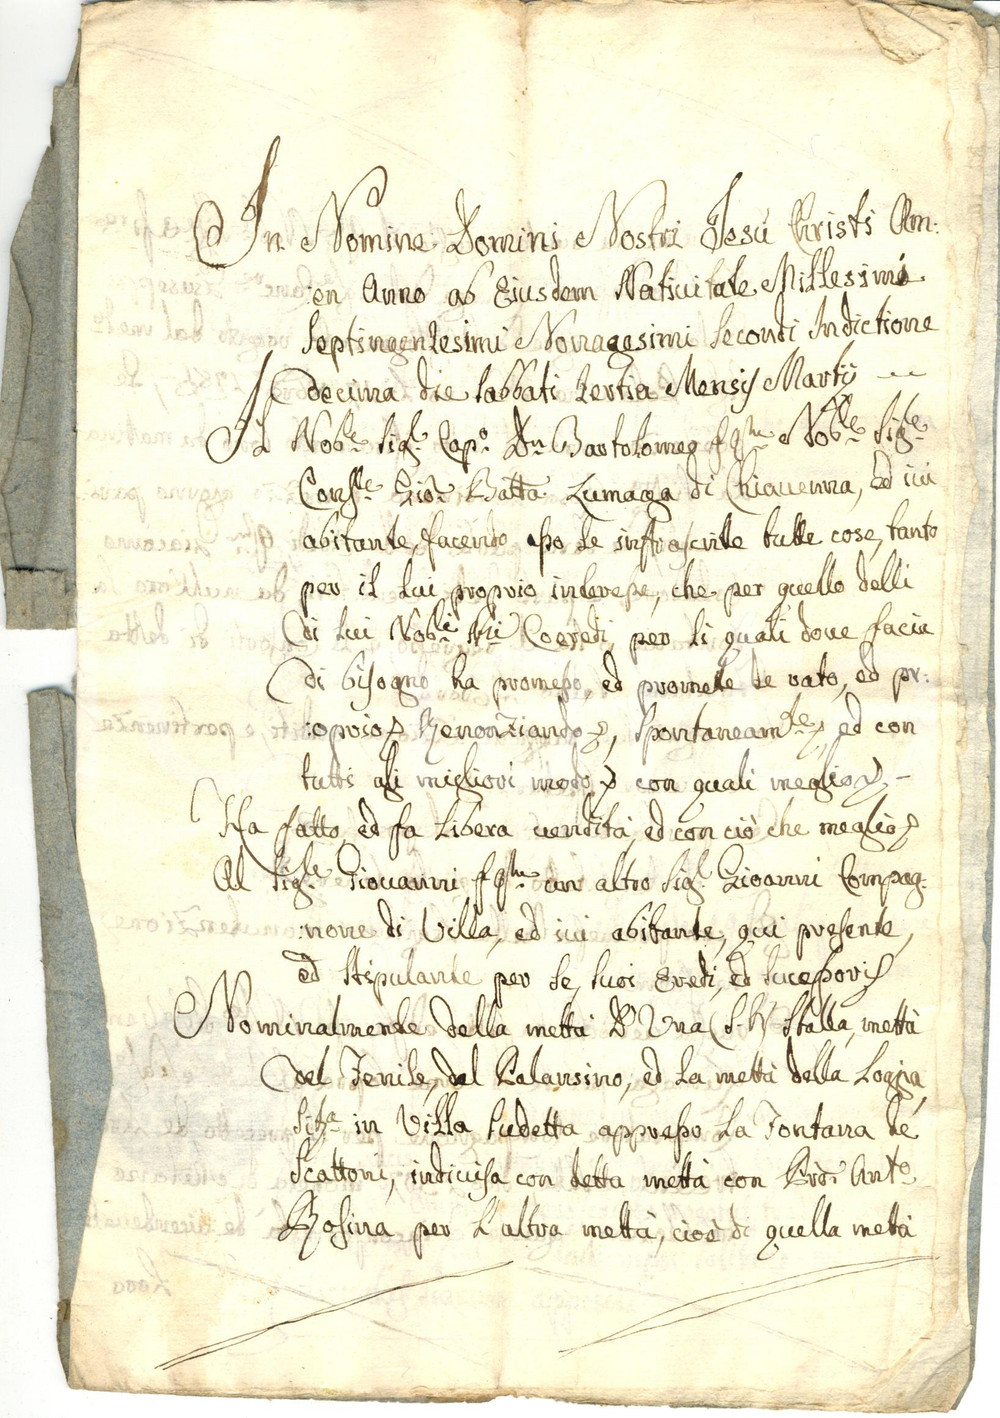 In Nomine Domini Nostri Jesù Christi Am:
:en Anno ab Eiusdem Natiuitate Millesimo
septingentesimi Nonagesimi secondi Indictione
decima die sabbati tertia Mensis Martij
Il Nob:e Sig:r Cap:o D:n Bartolomeo fq:m Nob:le Sig:e
Cons:le Gio: Batta Lumaga di Chiauenna, ed iui
abitante, facendo esso le infrascrite tutte cose, tanto
per il lui proprio interesse, che per quello delli
di lui Nob:i Coeredi, per li quali doue facia
di bisogno ha promesso, ed promete de rato, ed pr:
:oprio Renonziando, spontaneam:te, ed con
tutti gli migliori modo con quali meglio
Ha fatto, ed fa libera uendita, ed con ciò che meglio
Al Sig:le Giouanni fq:m un altro Sig:r Gioanni Compag:
:none di Villa, ed iui abitante, qui presente,
ed stipulante per se, suoi Eredi, ed sucessori
Nominatmente della mettà D'Una (S.R.) Stalla, mettà
del Fenile, del Balansino, ed la mettà della Logia
sit:a in Villa sudetta appresso la Fontana dé
Scattoni, indiuisa con detta mettà con Ant:o
Rosina per l'altra mettà, cioè di quella mettà